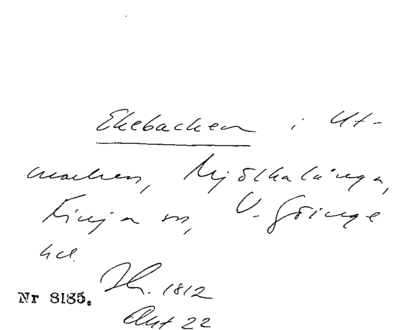 Ekebacken i Ut-
marken, Mjölkalånga,
Finja sn, V. Göinge
hd.
Nr 8185. Hr. 1812
Akt 22